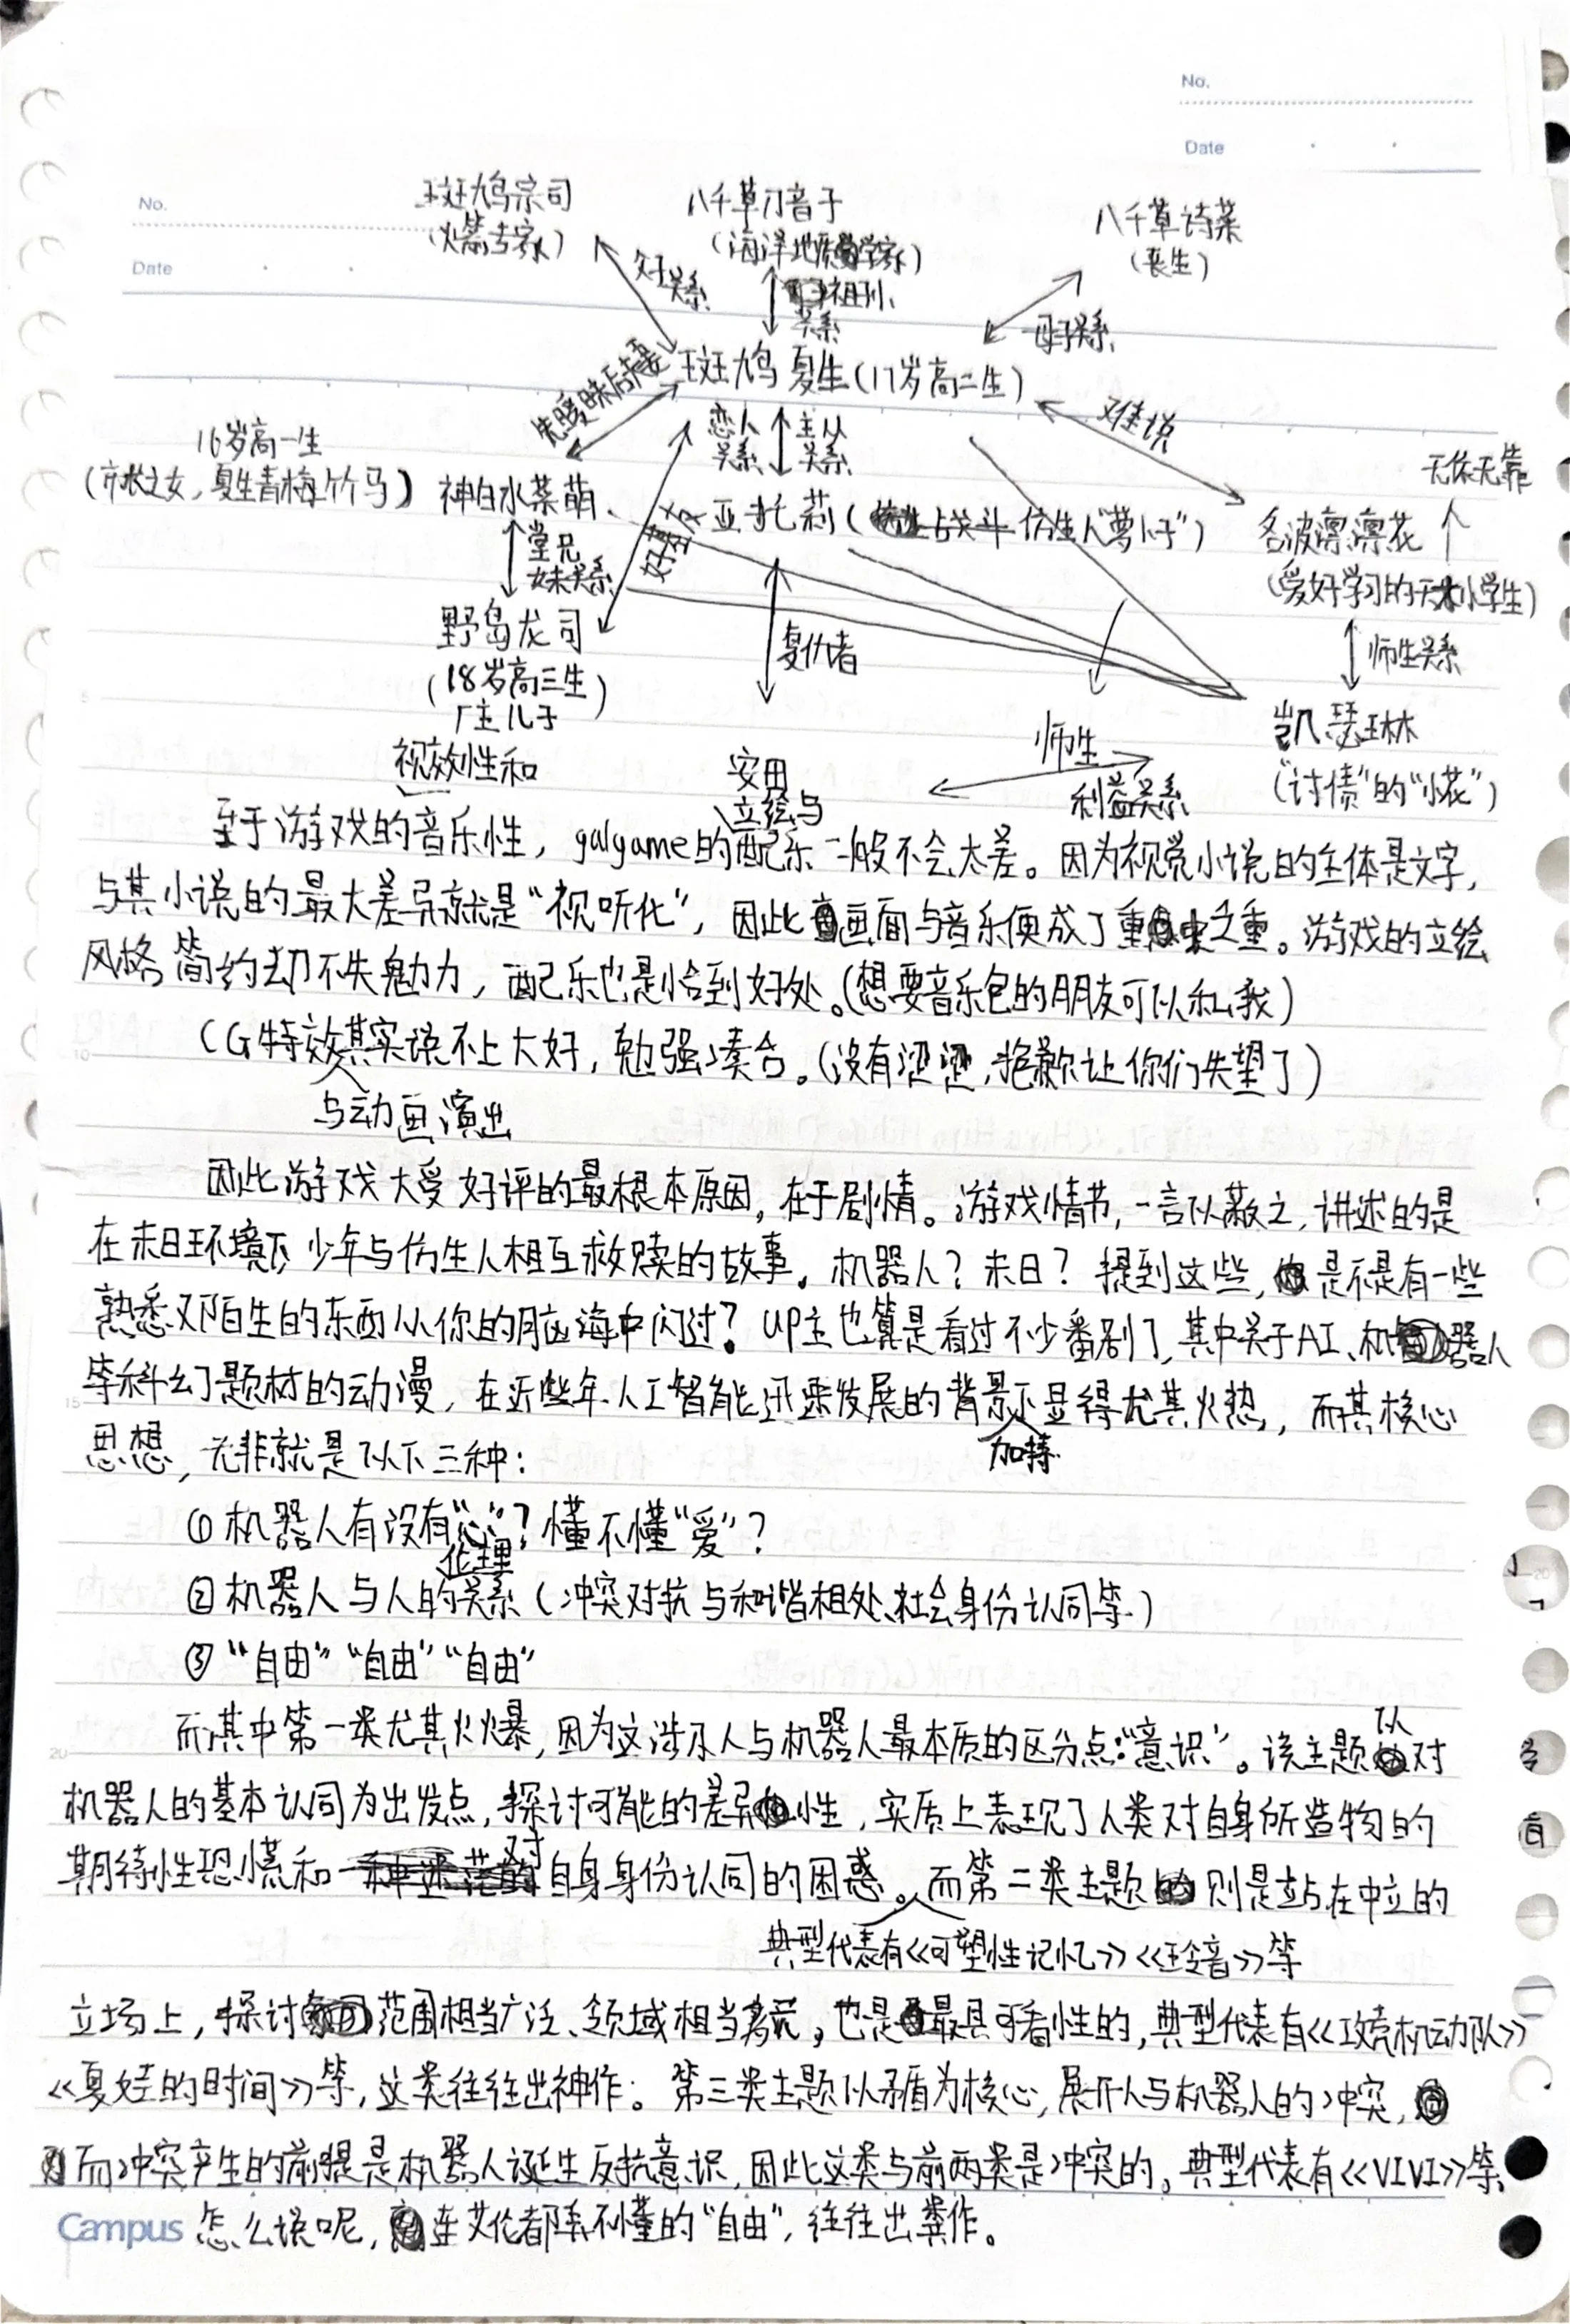 No.
Date
No.
Date
斑鸠宗司
(火箭专家)
八千草乃音子
(海洋地质学家)
八千草诗菜
(丧生)
父子关系
祖孙关系
母子关系
斑鸠夏生(17岁高二生)
先暧昧后挚爱
恋人关系
主从关系
难说
16岁高一生
(市长之女,夏生青梅竹马)
神白水菜萌
亚托莉(战斗仿生人"萝卜子")
无依无靠
各波凛凛花
(爱好学习的天才小学生)
堂兄妹关系
好室友
野岛龙司
(18岁高三生)
厂主儿子
复仇者
师生关系
凯瑟琳
("讨债"的"小花")
安田
师生
利益关系
视效性和
立绘与
至于游戏的音乐性,galgame的配乐一般不会太差。因为视觉小说的主体是文字,
与其小说的最大差异就是"视听化",因此画面与音乐便成了重中之重。游戏的立绘
风格简约却不失魅力,配乐也是恰到好处。(想要音乐包的朋友可以私我)
CG特效其实说不上太好,勉强凑合。(没有涩涩,抱歉让你们失望了)
与动画演出
因此游戏大受好评的最根本原因,在于剧情。游戏情节,一言以蔽之,讲述的是
在末日环境下,少年与仿生人相互救赎的故事。机器人?末日?提到这些,是不是有一些
熟悉又陌生的东西从你的脑海中闪过?UP主也算是看过不少番剧了,其中关于AI、机器人
等科幻题材的动漫,在近些年人工智能迅速发展的背景下显得尤其火热,而其核心
加持
思想,无非就是以下三种:
①机器人有没有"心"?懂不懂"爱"?
伦理
②机器人与人的关系(冲突对抗与和谐相处、社会身份认同等)
③"自由""自由""自由"
而其中第一类尤其火爆,因为这涉及人与机器人最本质的区分点:"意识"。该主题以对
机器人的基本认同为出发点,探讨可能的差异性,实质上表现了人类对自身所造物的
期待性恐慌和对自身身份认同的困惑。而第二类主题则是站在中立的
典型代表有《可塑性记忆》《玲音》等
立场上,探讨范围相当广泛、领域相当宽广,也是最具可看性的,典型代表有《攻壳机动队》
《夏娃的时间》等,这类往往出神作。第三类主题以矛盾为核心,展开人与机器人的冲突,
而冲突产生的前提是机器人诞生反抗意识,因此这类与前两类是冲突的。典型代表有《VIVI》等。
Campus 怎么说呢,连艾伦都弄不懂的"自由",往往出粪作。